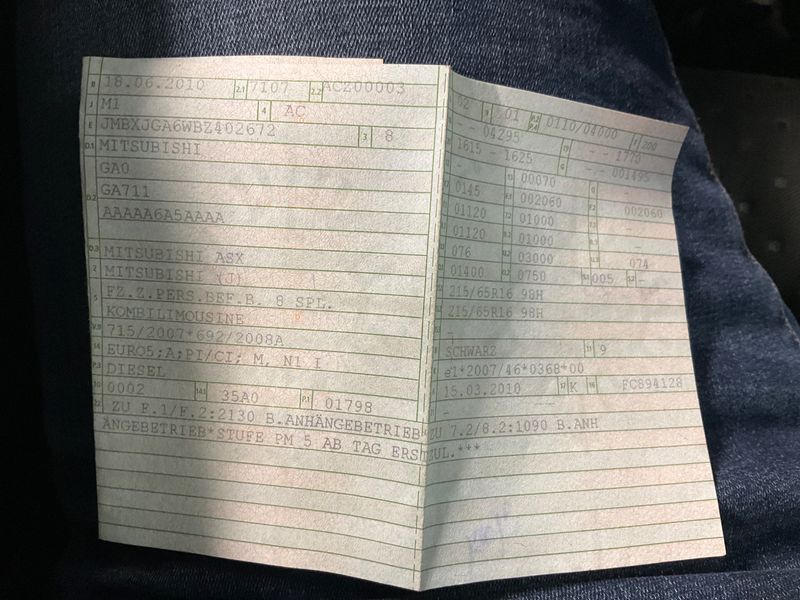 B 18.06.2010 2.1 7107 2.2 ACZ00003
J M1 4 AC
E JMBXJGA6WBZ402672 3 8
D.1 MITSUBISHI
GA0
D.2 GA711
AAAAA6A5AAAA
D.3 MITSUBISHI ASX
2 MITSUBISHI (J)
5 FZ.Z.PERS.BEF.B. 8 SPL.
KOMBILIMOUSINE
V.9 715/2007*692/2008A
14 EURO5;A;PI/CI; M, N1 I
P.3 DIESEL
10 0002 14.1 35A0 P.1 01798
22 ZU F.1/F.2:2130 B.ANHÄNGEBETRIEB*ZU 7.2/8.2:1090 B.ANH
ÄNGEBETRIEB*STUFE PM 5 AB TAG ERSTZUL.***
02 9 01 P.2 P.4 0110/04000 T 200
- - 04295 - - 1770
1615 - 1625 G - - 001495
- 13 00070 Q -
0145 F.1 002060 F.2 002060
01120 7.2 01000 -
01120 8.2 01000 -
076 U.2 03000 U.3 074
01400 O.2 0750 S.1 005 S.2 -
215/65R16 98H
215/65R16 98H
-
R SCHWARZ 11 9
K e1*2007/46*0368*00
15.03.2010 17 K 16 FC894128
-